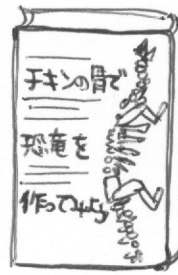 チキンの骨で
恐竜を
作ってみよう